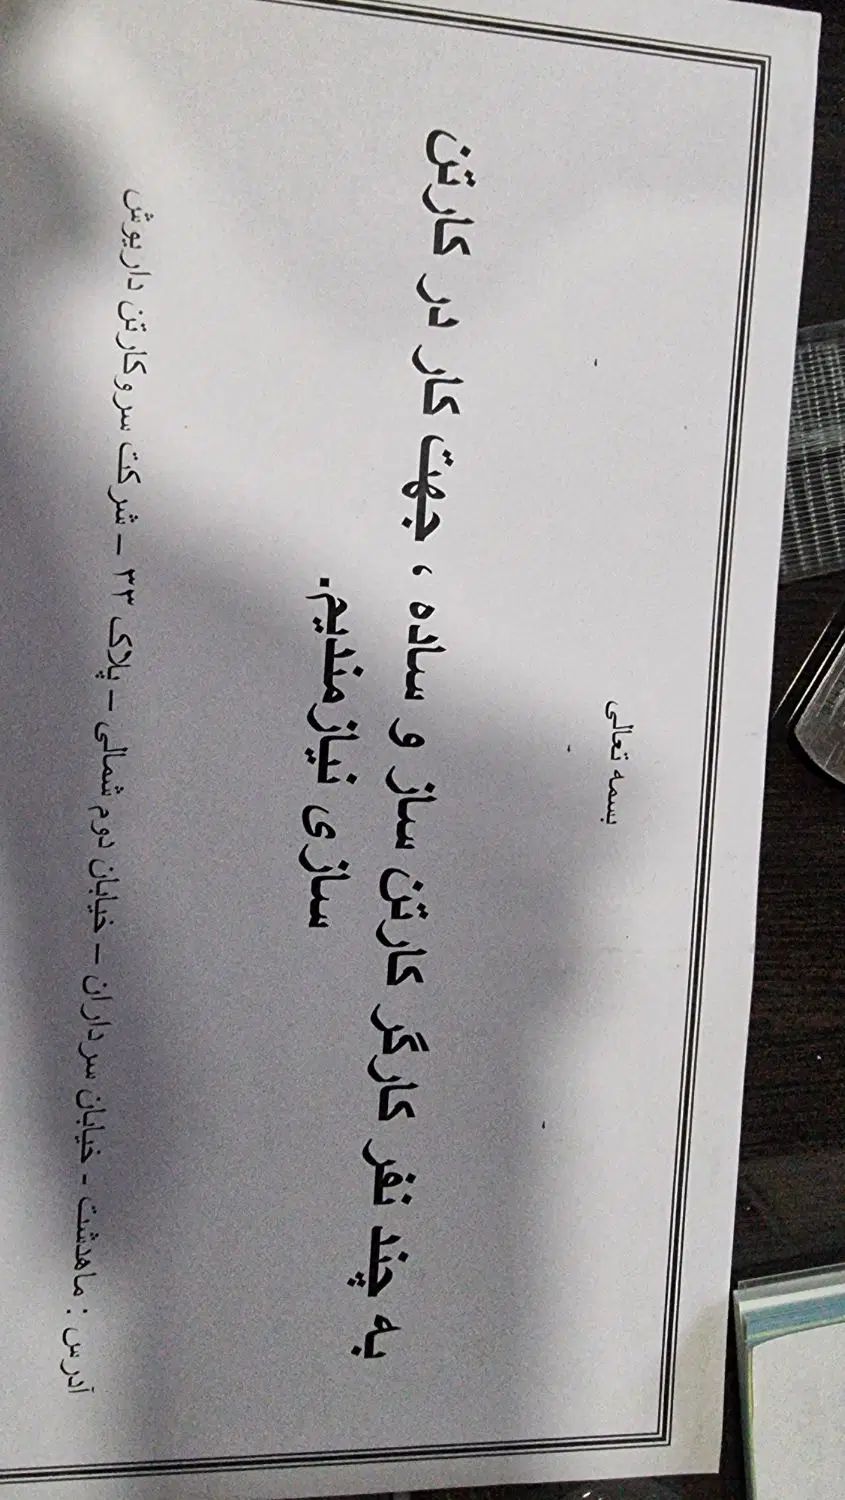 بسمه تعالی
به چند نفر کارگر کارتن ساز و ساده ، جهت کار در کارتن
سازی نیازمندیم.
آدرس : ماهدشت - خیابان سرداران – خیابان دوم شمالی – پلاک ۳۳ – شرکت سروکارتن داریوش